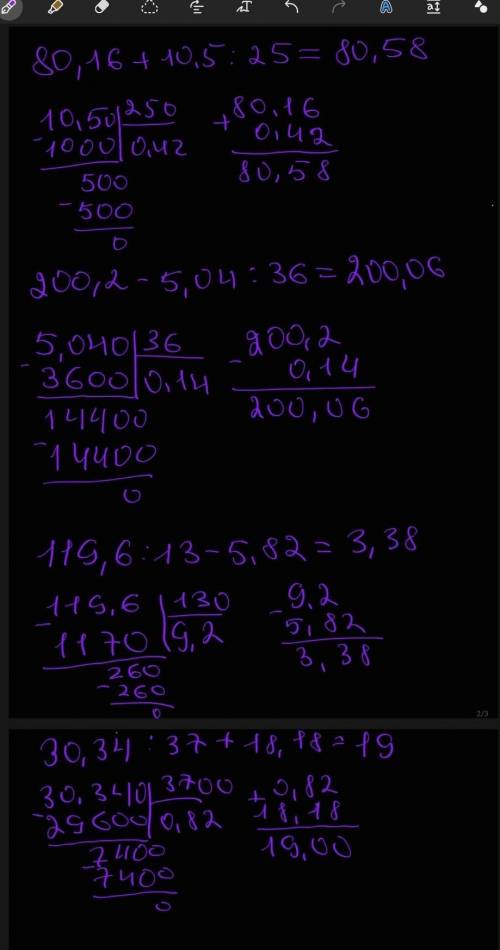 80,16 + 10,5 : 25 = 80,58
10,50 250
-1000 0,42
500
-500
0
+80,16
0,42
80,58
200,2 - 5,04 : 36 = 200,06
5,040 36
-3600 0,14
14400
-14400
0
-200,2
0,14
200,06
119,6 : 13 - 5,82 = 3,38
-119,6 130
1170 9,2
260
-260
0
-9,2
5,82
3,38
2/3
30,34 : 37 + 18,18 = 19
30,340 3700
-29600 0,82
7400
-7400
0
+0,82
18,18
19,00